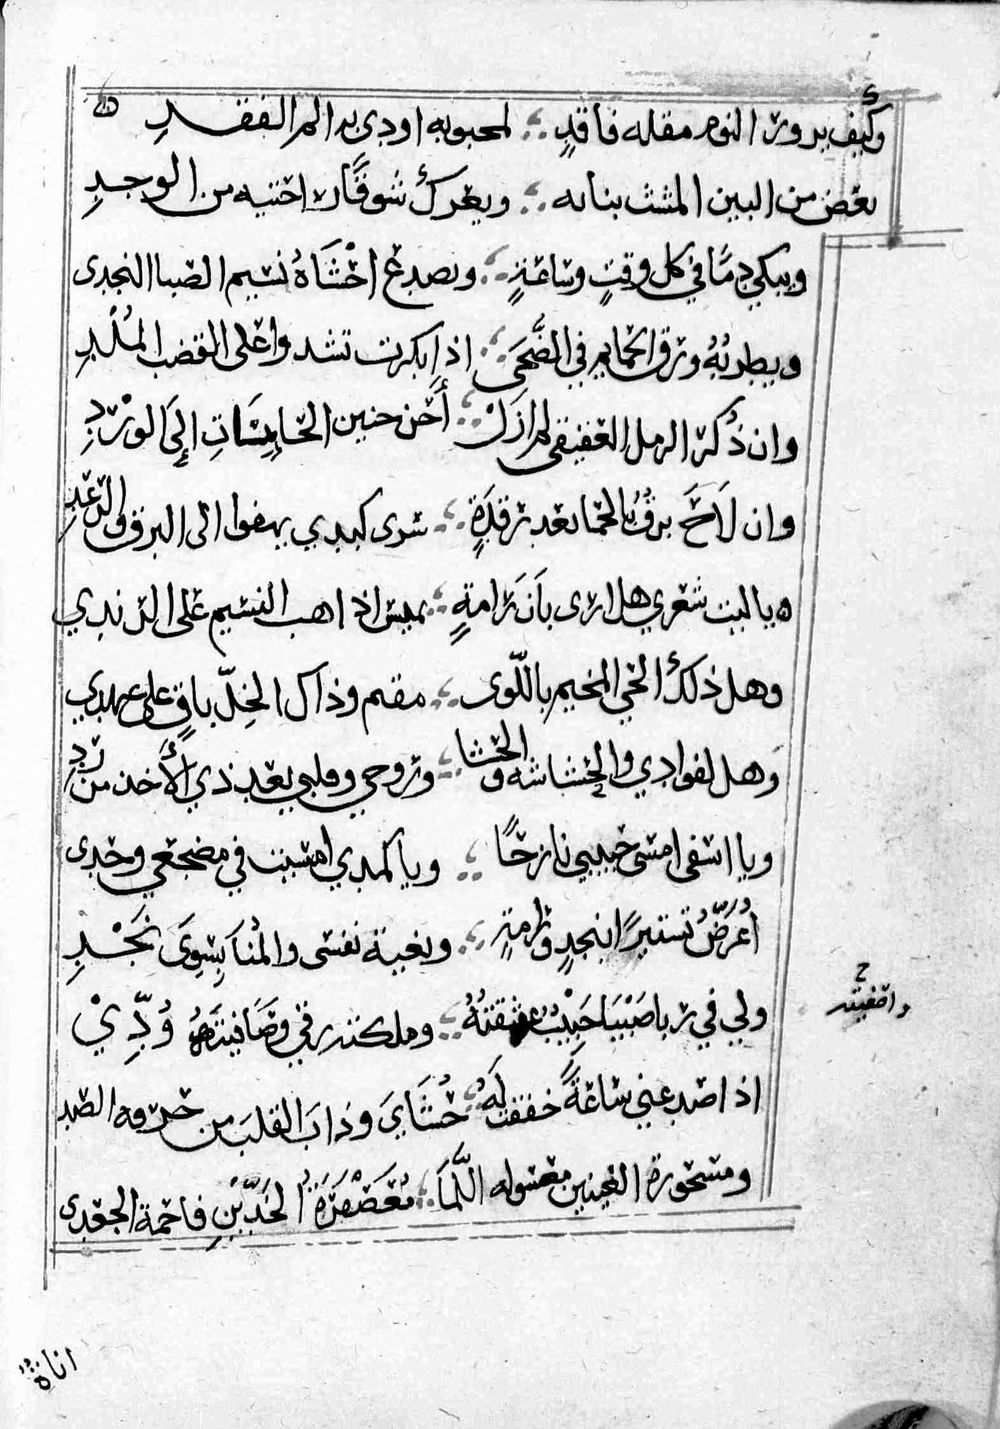 وكيف يزور النوم مقلة فاقدٍ ؛ لمحبوبه اودى به الم الفقدِ
يعض من البين المشت بنانه ؛ ويعرك شوقًا راحتيه من الوجدِ
ويبكي دمًا في كل وقتٍ وساعةٍ ؛ ويصدع احْشَاهُ نسيم الصبا النجدى
ويطربُهُ ورق الحمايم في الضُّحَى ؛ اذا بكرت تشدوا على القضب المُلْدِ
وان ذُكرَ الرمل العقيقى لم ازَلْ ؛ أَحن حنين الحَايِسَاتِ إلىَ الوِرْدِ
وان لَاحَ برقٌ بالحما بعد رقدَةٍ ؛ سرى كبدي يهفوا الى البرق والرّعدِ
ه يا ليت شعري هل ارى بانَ رَامةٍ ؛ يميس اذا هب النسيم على الرندي
وهل ذلك الحي المخيم باللّوى ؛ مقيم وذاك الخِلّ باقٍ على عهدي
وهل لفوادي والحشاشه والحشا ؛ وروحي وقلبي بعد ذي الأخذ من رَدِ
ويا اسفى امسى حبيبي نازحًا ؛ ويا كمدي امسيت في مضجعي وحدى
أُعرَضُ تستيرًا بنجدٍ ورامةٍ ؛ وبغية نفسى والمُنا بِسِوَى نَجْدِ
ولي في رباصَبْيَا حَبِيْبٌ عشقتُهُ ؛ وملكته رقي وصَافيتهُ وُدِّيْ
وامفيته ح
اذا صد عني ساعةً خفقت لَهُ ؛ حُشَايَ وذابَ القلبَ من حرقة الصد
ومسحورة العينين معسوله اللَّمَا ؛ مُعَصْفَرَةُ الخَدَّيْنِ فاحمة الجعدى
اناة